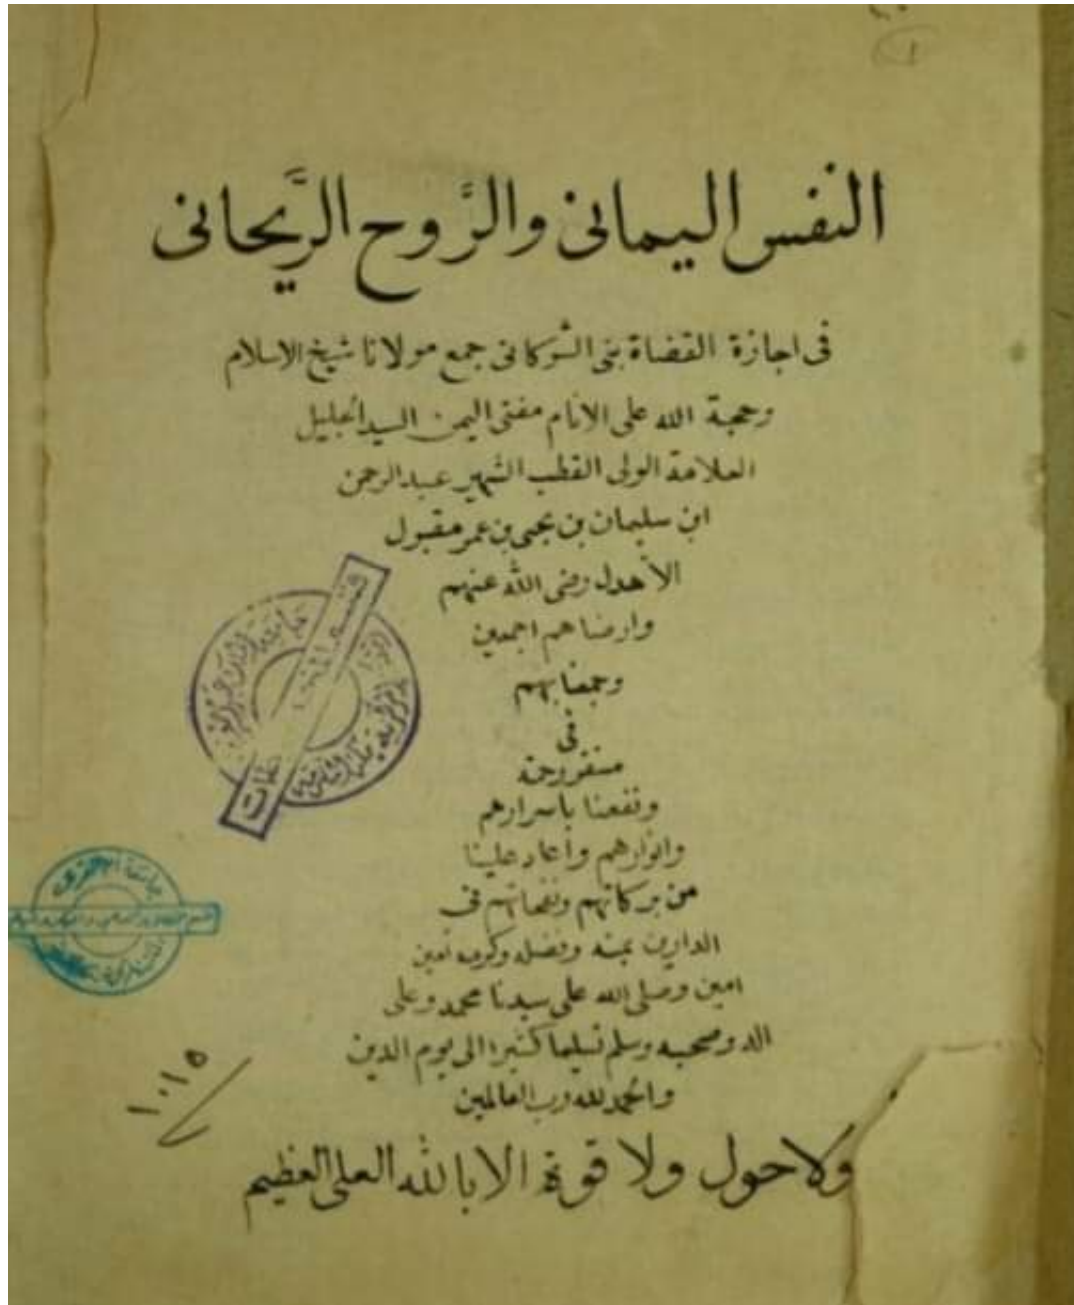 ١
النفس اليمانى والرَّوح الرَّيحانى
فى اجازة القضاة بنى الشوكانى جمع مولانا شيخ الاسلام
وحجة الله على الانام مفتى اليمن السيد الجليل
العلامة الولى القطب الشهير عبدالرحمن
ابن سليمان بن يحيى بن عمر مقبول
الأهدل رضى الله عنهم
وارضاهم اجمعين
وجمعنا بهم
فى
مستقر رحمته
ونفعنا باسرارهم
وانوارهم وأعاد علينا
من بركاتهم ونفحاتهم فى
الدارين بمنه وفضله وكرمه امين
امين وصلى الله على سيدنا محمد وعلى
اله وصحبه وسلم تسليما كثيرا الى يوم الدين
والحمد لله رب العالمين
ولا حول ولا قوة الا بالله العلى العظيم
قسم
١٠١٥